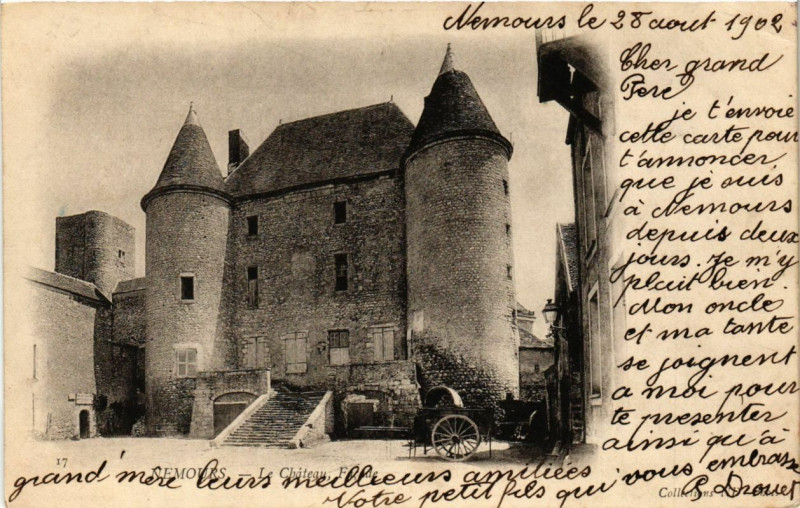 Nemours le 28 aout 1902
Cher grand
Père
je t'envoie
cette carte pour
t'annoncer
que je suis
à Nemours
depuis deux
jours. Je m'y
plait bien.
Mon oncle
et ma tante
se joignent
a moi pour
te presenter
ainsi qu'à
grand'mère leurs meilleures amitiées
Votre petit fils qui vous embrasse
P. Drouet
17
NEMOURS. — Le Château, Façade
Collections